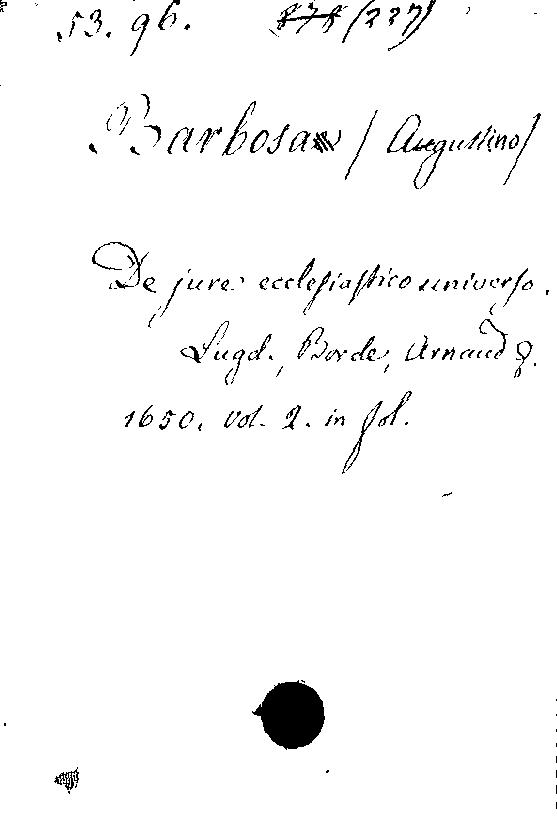 53. 96. 878 (227)
Barbosa / Augustino /
De jure ecclesiastico universo.
Lugd., Borde, Arnaud &.
1650. vol. 2. in fol.